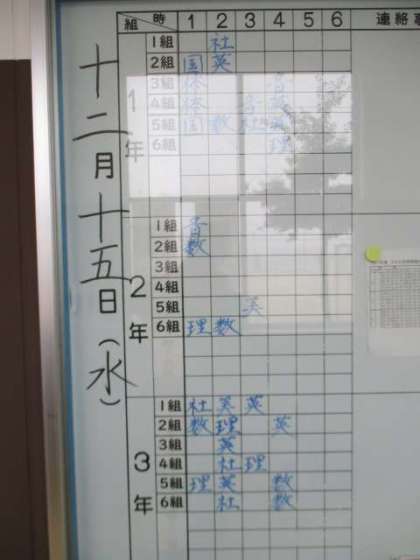 十二月十五日(水)
組 時 1 2 3 4 5 6 連絡事
1年
1組 社
2組 国 英
3組 体 音
4組 体
5組 国 数 社 英
6組 理
2年
1組 音
2組 数
3組
4組
5組 英
6組 理 数
3年
1組 社 英 英
2組 数 理 英
3組 英
4組 社 理
5組 理 英 数
6組 社 数